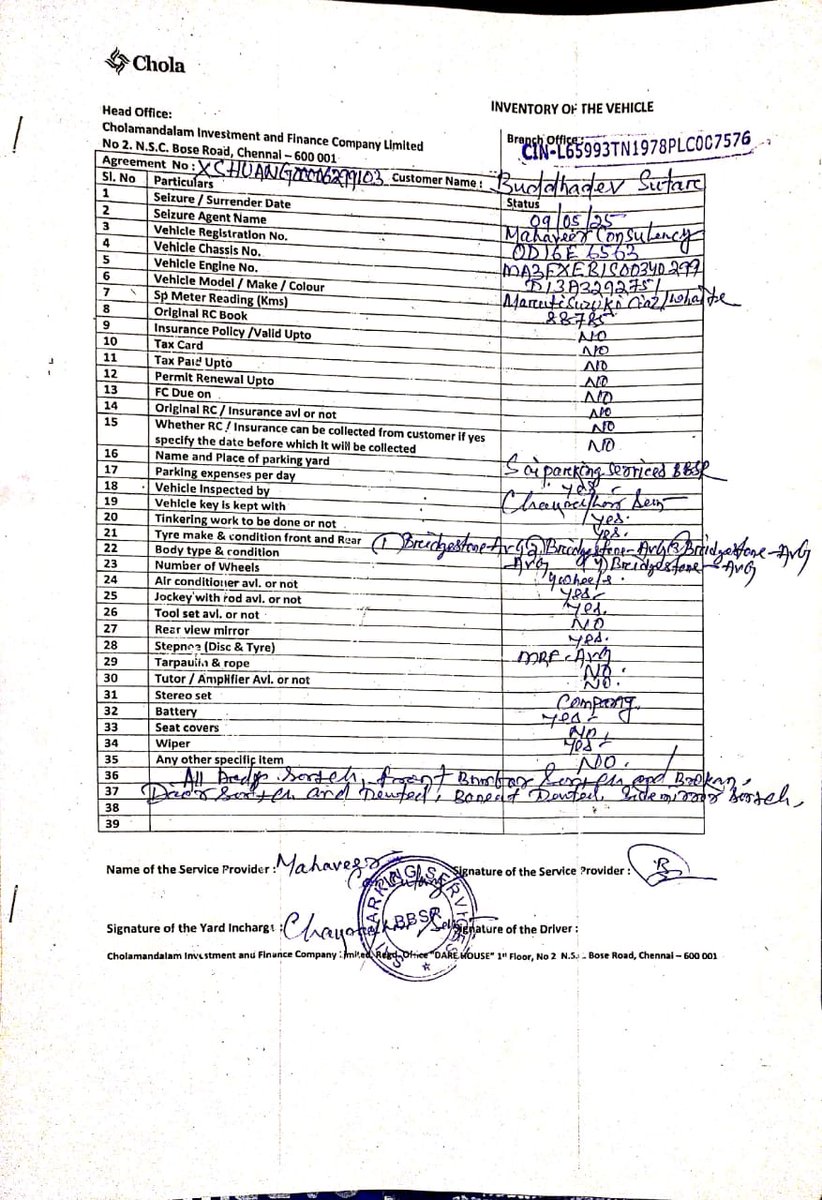 Chola
INVENTORY OF THE VEHICLE
Head Office:
Cholamandalam Investment and Finance Company Limited
No 2. N.S.C. Bose Road, Chennai – 600 001
Branch Office:
CIN-L65993TN1978PLC007576
Agreement No : XCHUANG00006299103 Customer Name : Buddhadev Sutar
Sl. No Particulars Status
1 Seizure / Surrender Date 09/05/25
2 Seizure Agent Name Mahaveer Consulency
3 Vehicle Registration No. OD16E 6563
4 Vehicle Chassis No. MA3EXEB1S00340299
5 Vehicle Engine No. D13A3292751
6 Vehicle Model / Make / Colour Maruti Suzuki Ciaz/white
7 Sp Meter Reading (Kms) 88785
8 Original RC Book NO
9 Insurance Policy /Valid Upto NO
10 Tax Card NO
11 Tax Paid Upto NO
12 Permit Renewal Upto NO
13 FC Due on NO
14 Original RC / Insurance avl or not NO
15 Whether RC / Insurance can be collected from customer if yes
specify the date before which it will be collected NO
16 Name and Place of parking yard Sai parking services BBSR
17 Parking expenses per day yes
18 Vehicle Inspected by
19 Vehicle key is kept with yes.
20 Tinkering work to be done or not yes.
21 Tyre make & condition front and Rear (1) Bridgestone-AvG (2) Bridgestone-AvG (3) Bridgestone-AvG
22 Body type & condition AvG (4) Bridgestone-AvG
23 Number of Wheels 4 wheels.
24 Air conditioner avl. or not yes
25 Jockey with rod avl. or not yes.
26 Tool set avl. or not NO
27 Rear view mirror yes.
28 Stepnee (Disc & Tyre) MRF-AvG
29 Tarpaulin & rope NO.
30 Tutor / Amplifier Avl. or not NO.
31 Stereo set Company
32 Battery yes
33 Seat covers NO,
34 Wiper yes
35 Any other specific item NO.
36 All front and Broken,
37 Door and Dented, Dented,
38
39
Name of the Service Provider : Mahaveer
Signature of the Service Provider :
Signature of the Yard Incharge :
Signature of the Driver :
SAI PARKING SERVICES
BBSR
Cholamandalam Investment and Finance Company Limited, Regd. Office "DARE HOUSE" 1st Floor, No 2 N.S.C. Bose Road, Chennai – 600 001